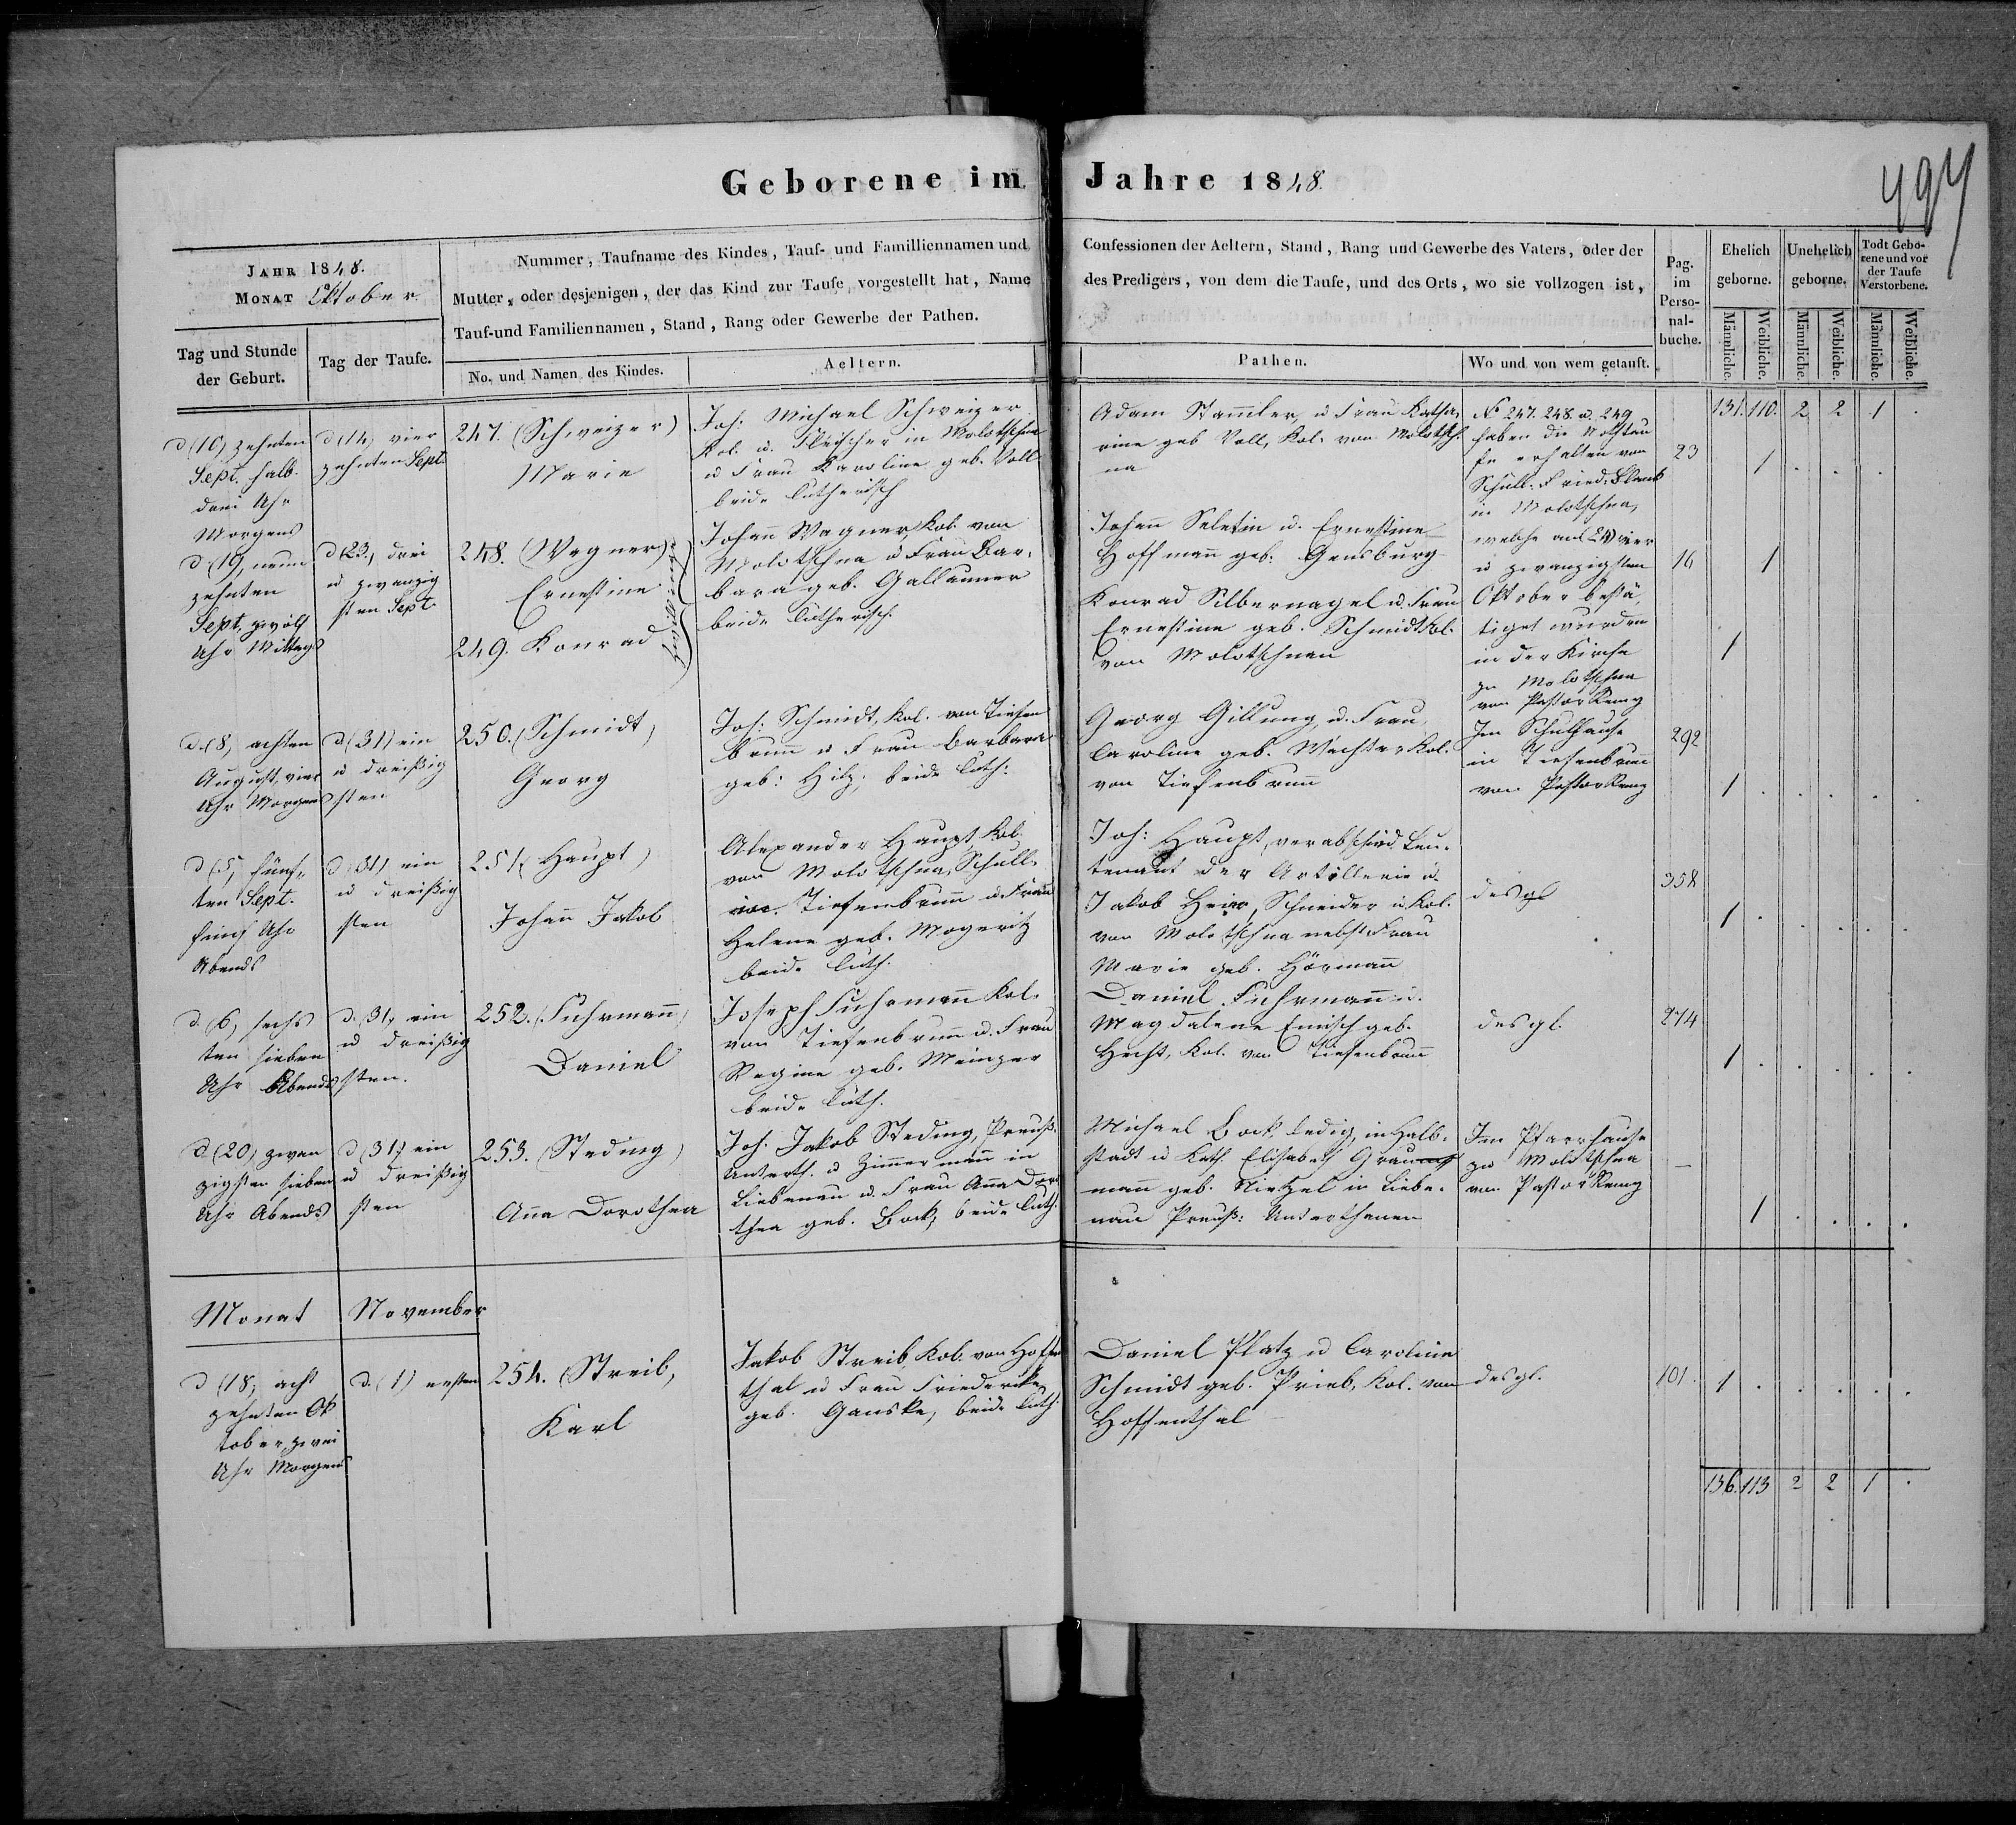 Geborene im Jahre 1848.
497
JAHR 1848.
MONAT Oktober
Tag und Stunde der Geburt.
Tag der Taufe.
Nummer, Taufname des Kindes, Tauf- und Familliennamen und
Mutter, oder desjenigen, der das Kind zur Taufe vorgestellt hat, Name
Tauf-und Familiennamen, Stand, Rang oder Gewerbe der Pathen.
No. und Namen des Kindes.
Aeltern.
Confessionen der Aeltern, Stand, Rang und Gewerbe des Vaters, oder der
des Predigers, von dem die Taufe, und des Orts, wo sie vollzogen ist,
Pathen.
Wo und von wem getauft.
Pag. im Perso-nal-buche.
Ehelich geborne.
Unehelich geborne.
Todt Gebo-rene und vor der Taufe Verstorbene.
Männliche. Weibliche. Männliche. Weibliche. Männliche. Weibliche.
131. 110. 2 2 1 .
d (10) zehnten
Sept. halb
drei Uhr
Morgens
d (14) vier
zehnten Sept.
247. (Schweizer)
Marie
Joh: Michael Schweizer
Kol. u. Fleischer in Molotschna
u Frau Karoline geb. Voll
beide lutherisch
Adam Stamler u Frau Katha
rine geb Voll, Kol. von Molotsch
na
No 247. 248. u. 249
haben die Nothtau
fe erhalten von
Schull: Fried: Blank
in Molotschna,
welche am 24 vier
u zwanzigsten
Oktober bestä
tiget wurden
in der Kirche
zu Molotschna
von Pastor
23
1
d (19) neun
zehnten
Sept. zwölf
Uhr Mittags
d (23., drei
u zwanzig
sten Sept.
248. (Wagner)
Ernestine
249. Konrad
Johann Wagner Kol. von
Molotschna u Frau Bar-
bara geb.
beide lutherisch.
Johann u. Ernestine
Hoffmann geb: Gensburg
Konrad Silbernagel u. Frau
Ernestine geb. Schmidt Kol.
von Molotschna
16
1
1
d. (8) achten
August, vier
Uhr Morgens
d (31) ein
u dreißig
sten
250. (Schmidt)
Georg
Joh: Schmidt, Kol. von Tiefen
brunn u Frau Barbara
geb: Hilz, beide luth:
Georg Gillung u. Frau
Caroline geb. Wachter Kol.
von Tiefenbrunn
Im Schulhause
in Tiefenbrunn
von Pastor
292
1
d (5) fünf-
ten Sept.
fünf Uhr
Abends
d (31) ein
u dreißig
sten
251 (Haupt)
Johann Jakob
Alexander Haupt, Kol.
von Molotschna, Schull.
Tiefenbrunn u. Frau
Helene geb. Mogeritz
beide luth.
Joh: Haupt, verabschied. Leu-
tenant der Artillerie u.
Jakob Heier, Schneider u Kol.
von Molotschna nebst Frau
Marie geb. Hörmann
desgl
358
1
d. (6) sechs
ten sieben
Uhr Abends
d. (31) ein
u dreißig
sten.
252. (Fuhrmann)
Daniel
Joseph Fuhrmann Kol.
von Tiefenbrunn u. Frau
Regine geb. Meinzer
beide luth.
Daniel Fuhrmann u.
Magdalene Emisch geb.
Hecht, Kol. von Tiefenbrunn
desgl.
274
1
d (20) zwan
zigsten sieben
Uhr Abends
d (31) ein
u dreißig
sten
253. (Steding)
Anna Dorothea
Joh. Jakob Steding, Preuß.
Unterth. u Zimmermann in
Liebenau u. Frau Anna Doro
thea geb. Bock, beide luth.
Michael Bock, ledig, in Halb-
stadt u Kath. Elisabeth Grau
mann geb. Nietzel in Liebe-
nau Preuß: Unterthanen
Im Pfarrhause
zu Molotschna
von Pastor
1
Monat November
d (18) acht
zehnten Ok
tober, zwei
Uhr Morgens
d. (1) ersten
254. (Streib,
Karl
Jakob Streib, Kol. von Hoffen
thal u Frau Friederike
geb. Ganske, beide luth.
Daniel Platz u Caroline
Schmidt geb. Prieb, Kol. von
Hoffenthal
desgl.
101.
1
136. 113 2 2 1 .